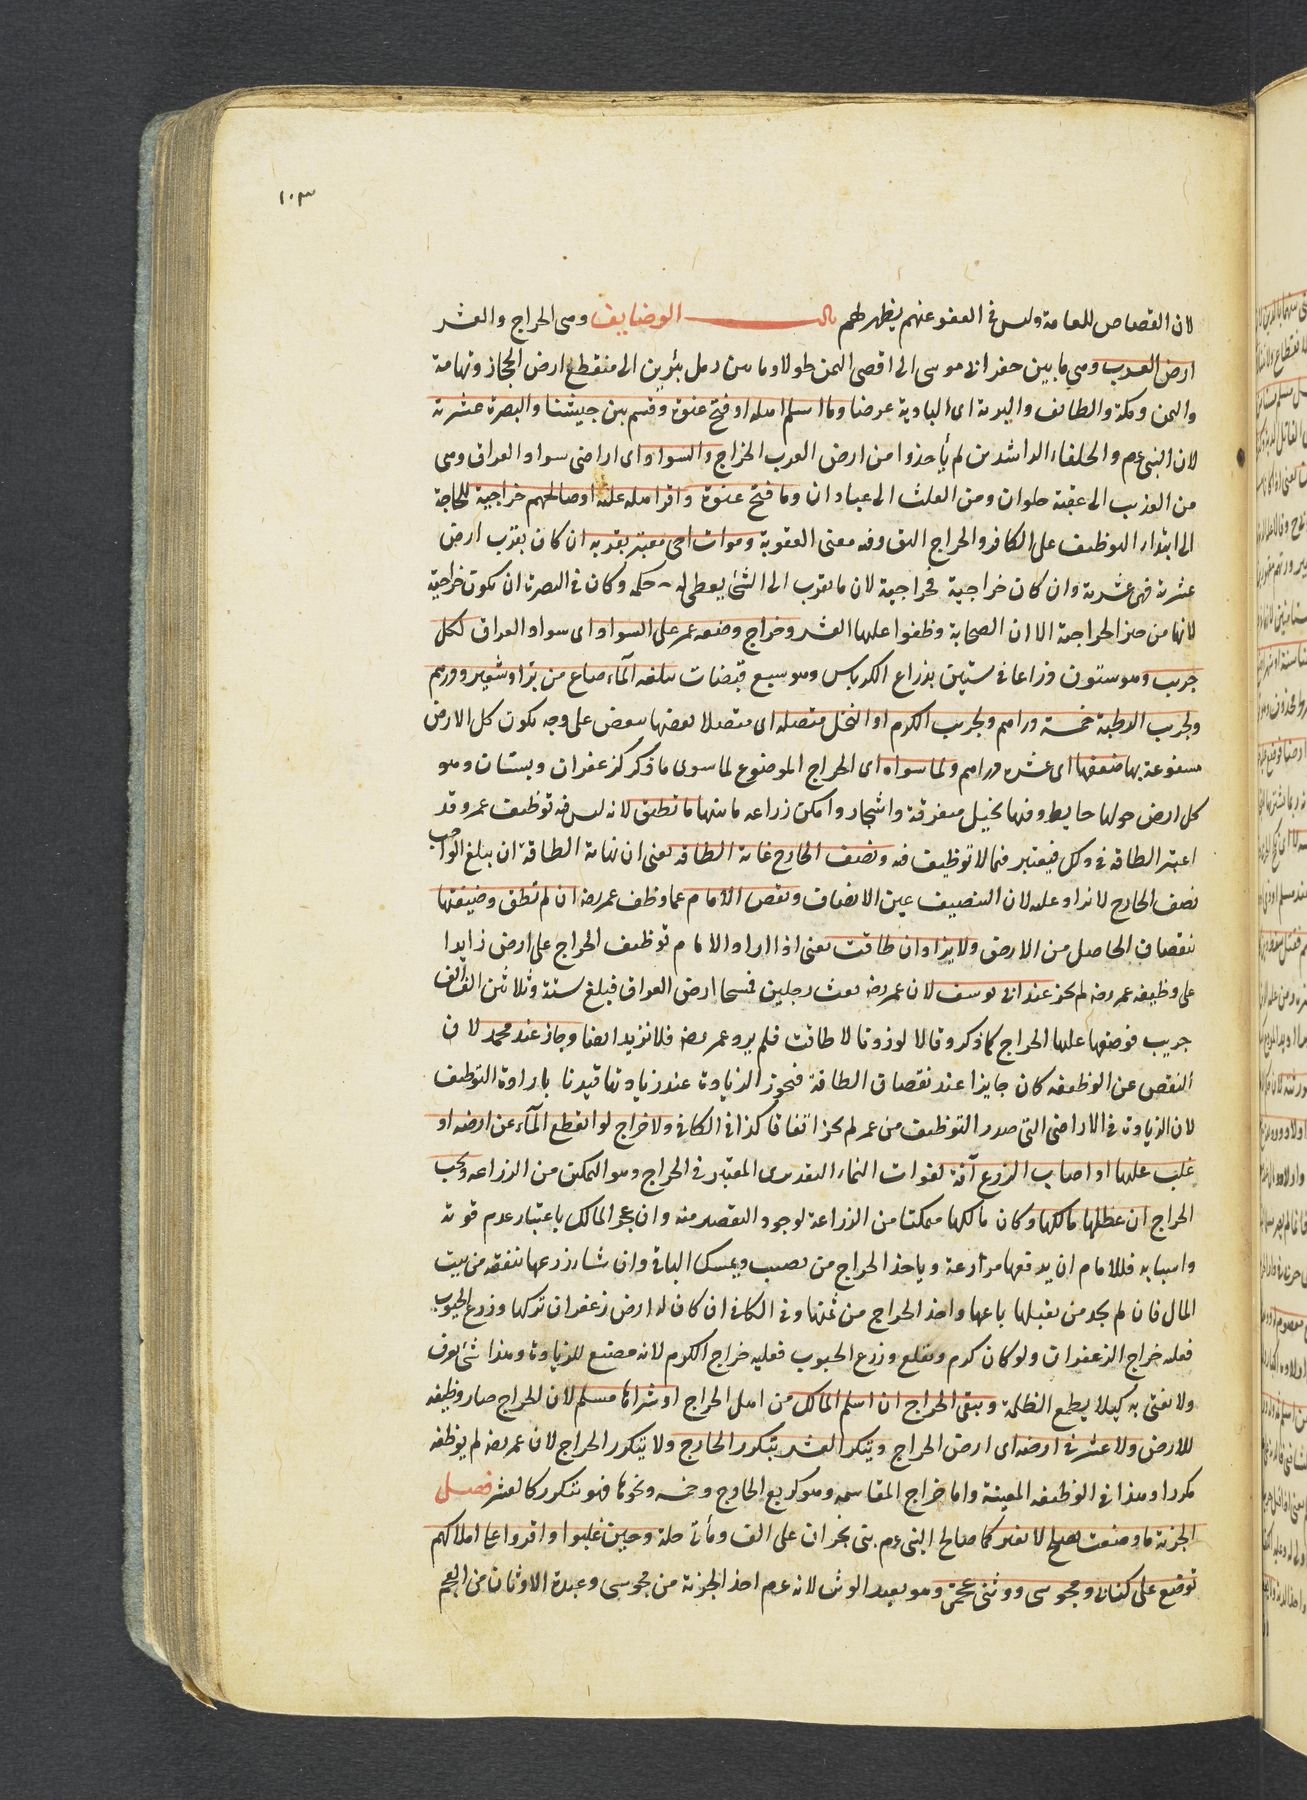 ١٠٣
لان القصاص للعامة وليس فى العفو عنهم يظهر لهم باب الوضايف وهى الخراج والعشر
ارض العرب وهى ما بين حفر ابى موسى الى اقصى اليمن طولا وما بين رمل يثربن الى منقطع ارض الحجاز وتهامة
واليمن ومكة والطائف والبرية اى البادية عرضا وما اسلم اهله او فتح عنوة وقسم بين جيشنا والبصرة عشرية
لان النبى عم والخلفاء الراشدين لم يأخذوا من ارض العرب الخراج والسواد اى اراضى سواد العراق وهى
من العذيب الى عقبة حلوان ومن العلث الى عبادان وما فتح عنوة واقر اهله عليه او صالحهم خراجية للحاجة
الى ابتداء التوظيف على الكافر والخراج اليق وفيه معنى العقوبة وموات احى معتبر بقربه ان كان بقرب ارض
عشرية فهى عشرية وان كان خراجية فخراجية لان ما يقرب الى الشئ يعطى له حكمه وكان فى البصرة ان تكون خراجية
لانها من حيز الخراجية الا ان الصحابة وظفوا عليها العشر وخراج وضعه عمر على السواد اى سواد العراق لكل
جريب وهو ستون ذراعا فى ستين بذراع الكرباس وهو سبع قبضات يبلغه الماء صاع من بر او شعير ودرهم
ولجريب الرطبة خمسة دراهم ولجريب الكرم او النخل متصله اى متصلا بعضها ببعض على وجه يكون كل الارض
مشغوعة بها ضعفها اى عشرة دراهم ولما سواه اى الخراج الموضوع لما سوى ما ذكر كزعفران وبستان وهو
كل ارض حولها حايط وفيها نخيل متفرقة واشجار وامكن زراعة ما بينها ما تطيق لانه ليس فيه توظيف عمر وقد
اعتبر الطاقة فى ذلك فيعتبر فيما لا توظيف فيه ونصف الخارج غاية الطاقة يعنى ان نهاية الطاقة ان يبلغ الواجب
نصف الخارج لا يزاد عليه لان التنصيف عين الانصاف ونقص الامام عما وظف عمر رضه ان لم تطق وضيفتها
بنقصان الحاصل من الارض ولا يزاد وان طاقت يعنى اذا اراد الامام توظيف الخراج على ارض زايدا
على وظيفة عمر رضه لم يجز عند ابى يوسف لان عمر رضه بعث رجلين فمسحا ارض العراق فبلغ ستة وثلاثين الف الف
جريب فوضعها عليها الخراج كما ذكر وقالا لو زدنا لا طاقت فلم يزد عمر رضه فلا نزيد ايضا وجاز عند محمد لان
النقص عن الوظيفة كان جايزا عند نقصان الطاقة فتجوز الزيادة عند زيادتها قيدنا باراوة التوظيف
لان الزيادة فى الاراضى التى صدر التوظيف من عمر لم يجز اتفاقا كذا فى الكافى ولا خراج لو انقطع الماء عن ارضه او
غلب عليها او اصاب الزرع آفة لفوات النماء التقديرى المعتبر فى الخراج وهو التمكن من الزراعة ويجب
الخراج ان عطلها مالكها وكان مالكها متمكنا من الزراعة لوجود التقصير منه وان عجز المالك باعتبار عدم قوته
واسبابه فللامام ان يدفعها مزارعة وياخذ الخراج من نصيب ويمسك الباقى وان شاء زرعها بنفقة من بيت
المال فان لم يجد من يقبلها باعها واخذ الخراج من ثمنها وفى الكافى ان كان له ارض زعفران تركها وزرع الحبوب
فعليه خراج الزعفران ولو كان كرم وقلع وزرع الحبوب فعليه خراج الكرم لانه مضيع للزيادة وهذا شئ يعرف
ولا يفتى به كيلا يطمع الظلمة ويبقى الخراج ان اسلم المالك من اهل الخراج او شراها مسلم لان الخراج صار وظيفة
للارض ولا عشر فى ارضه اى ارض الخراج ويتكرر العشر بتكرر الخارج ولا يتكرر الخراج لان عمر رضه لم يوظفه
مكررا وهذا فى الوظيفة المعينة واما خراج المقاسمة وهو كربع الخارج وخمسه ونحوها فهو يتكرر كالعشر فصل
الجزية ما وضعت بصلح لا يغير كما صالح النبى عم بنى نجران على الف ومأتى حلة وحين غلبوا واقروا على املاكهم
توضع على كتابى ومجوسى ووثنى عجمى وهو يعبد الوثن لانه عم اخذ الجزية من مجوسى وعبدة الاوثان من العجم